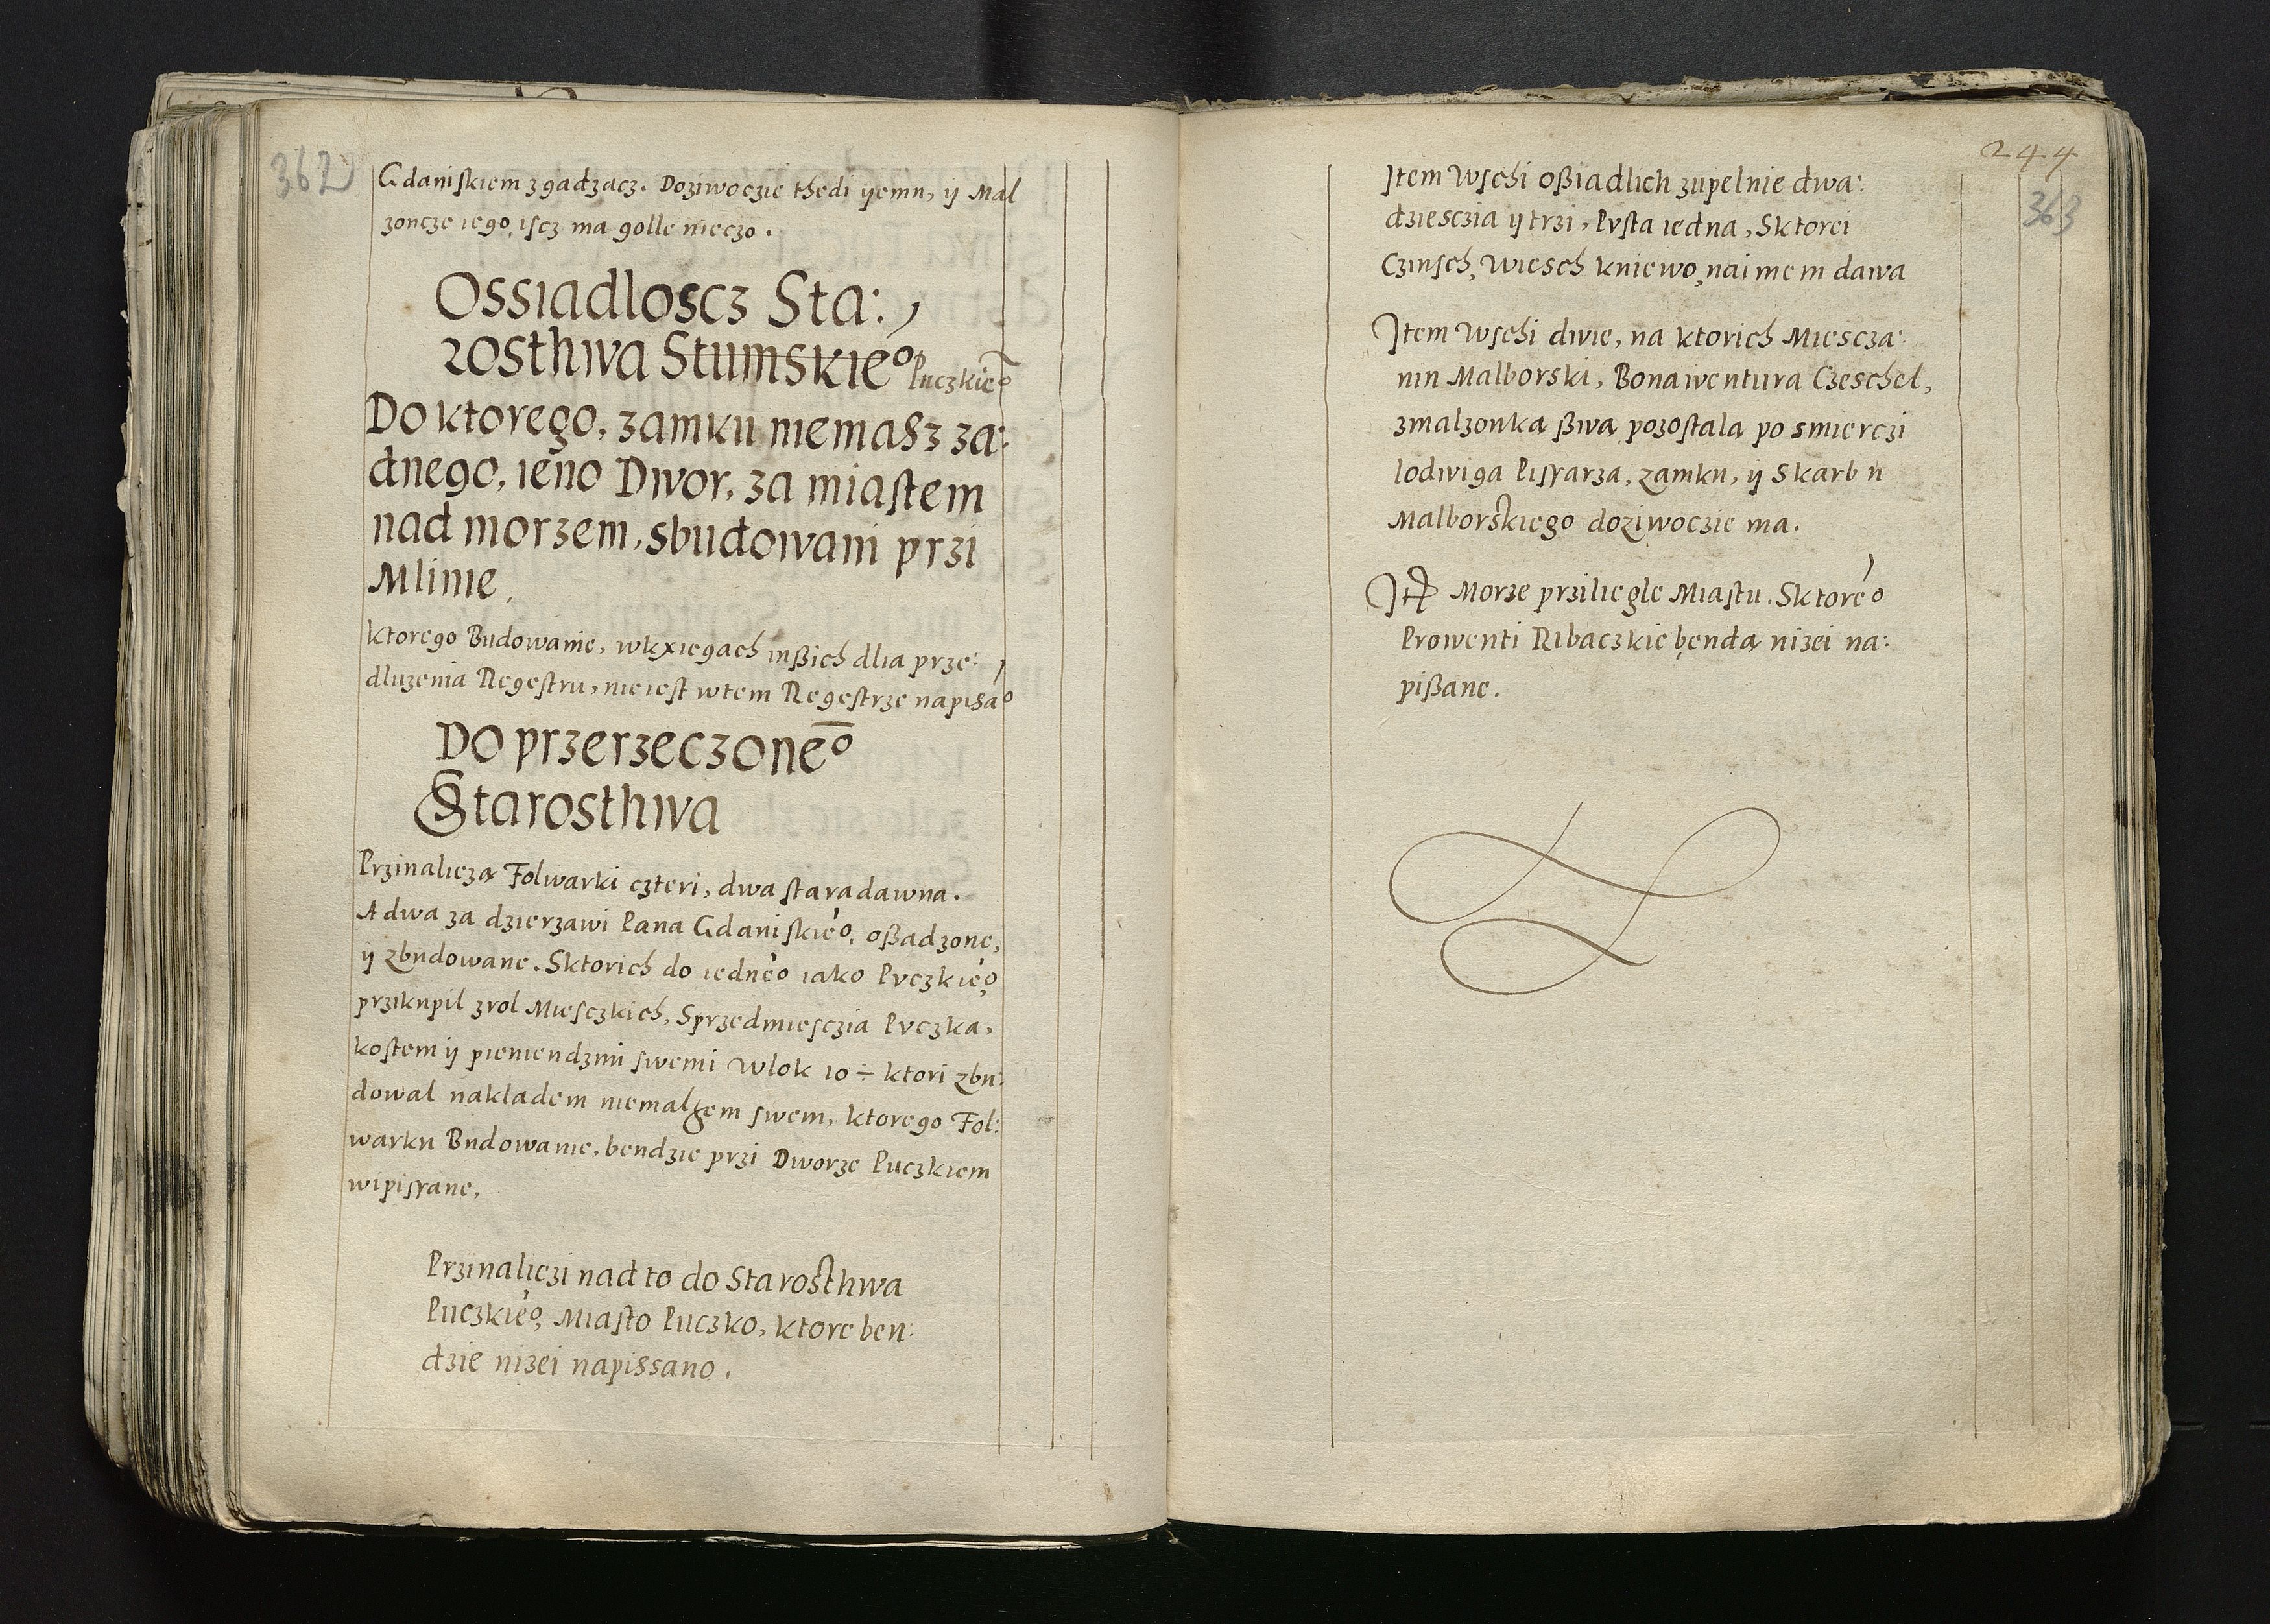 362
Gdaniskiem zgadzacz. Doziwoczie thedi yemu, ÿ Mal
zoncze iego, iscz ma golle nieczo.
Ossiadloscz Sta:
rosthwa Stumskieº Puczkieº
Do ktorego, zamku niemasz za:
dnego, ieno Dwor, za miastem
nad morzem, sbudowani przi
Mlinie,
ktorego Budowanie, wkxiegach inßich dlia prze:
dluzenia Regestru, nieiest wtem Regestrze napisaº
Do przerzeczoneº
Starosthwa
Przinalicza Folwarki czteri, dwa staradawna.
A dwa za dzierzawi Pana Gdaniskieº, oßadzone,
ÿ zbudowane. Sktorich do iedneº iako Pvczkieº
przikupil zrol Miesczkich, Sprzedmiesczia Pvczka,
kostem ÿ pieniendzmi swemi Wlok 10 ÷ ktori zbu:
dowal nakladem niemalzem swem, ktorego Fol:
warku Budowanie, bendzie przi Dworze Puczkiem
wipissane,
Przinaliczi nad to do Starosthwa
Puczkieº, Miasto Puczko, ktore ben:
dzie nizei napissano.
244
363
Item Wschi oßiadlich zupelnie dwa:
dziesczia ÿ trzi, Pvsta iedna, Sktorei
Czinsch, Wiesch Kniewo, naimem dawa
Item Wschi dwie, na ktorich Miescza:
nin Malborski, Bonawentura Czeschel,
zmalzonka ßwa pozostala po smierczi
lodwiga Pissarza, zamku, ÿ Skarbu
Malborskiego doziwoczie ma.
Itꝫ Morze prziliegle Miastu. Sktoreº
Prowenti Ribaczkie benda nizei na:
pißane.